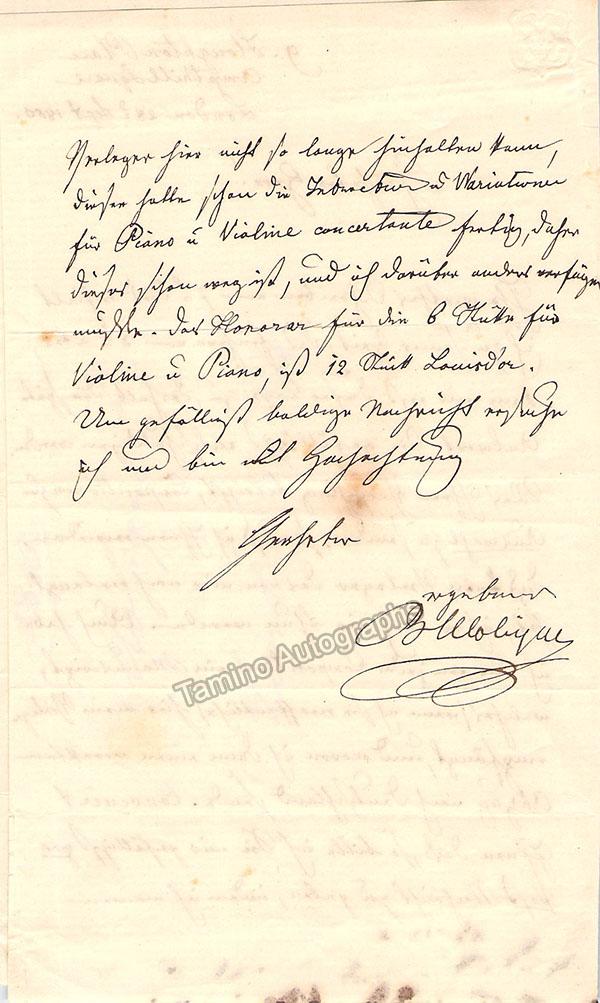 Verleger hier nicht so lange hinhalten kann,
dieser hatte schon die Introduction u Variationen
für Piano u Violine concertante fertig, daher
dieses schon weg ist, und ich darüber anders verfügen
mußte. Das Honorar für die 6 Stücke für
Violine u Piano, ist 12 Stück Louisd'or.
Um gefälligst baldige Nachricht ersuche
ich und bin mit Hochachtung
Verehrter
ergebener
BMolique
Tamino Autographs